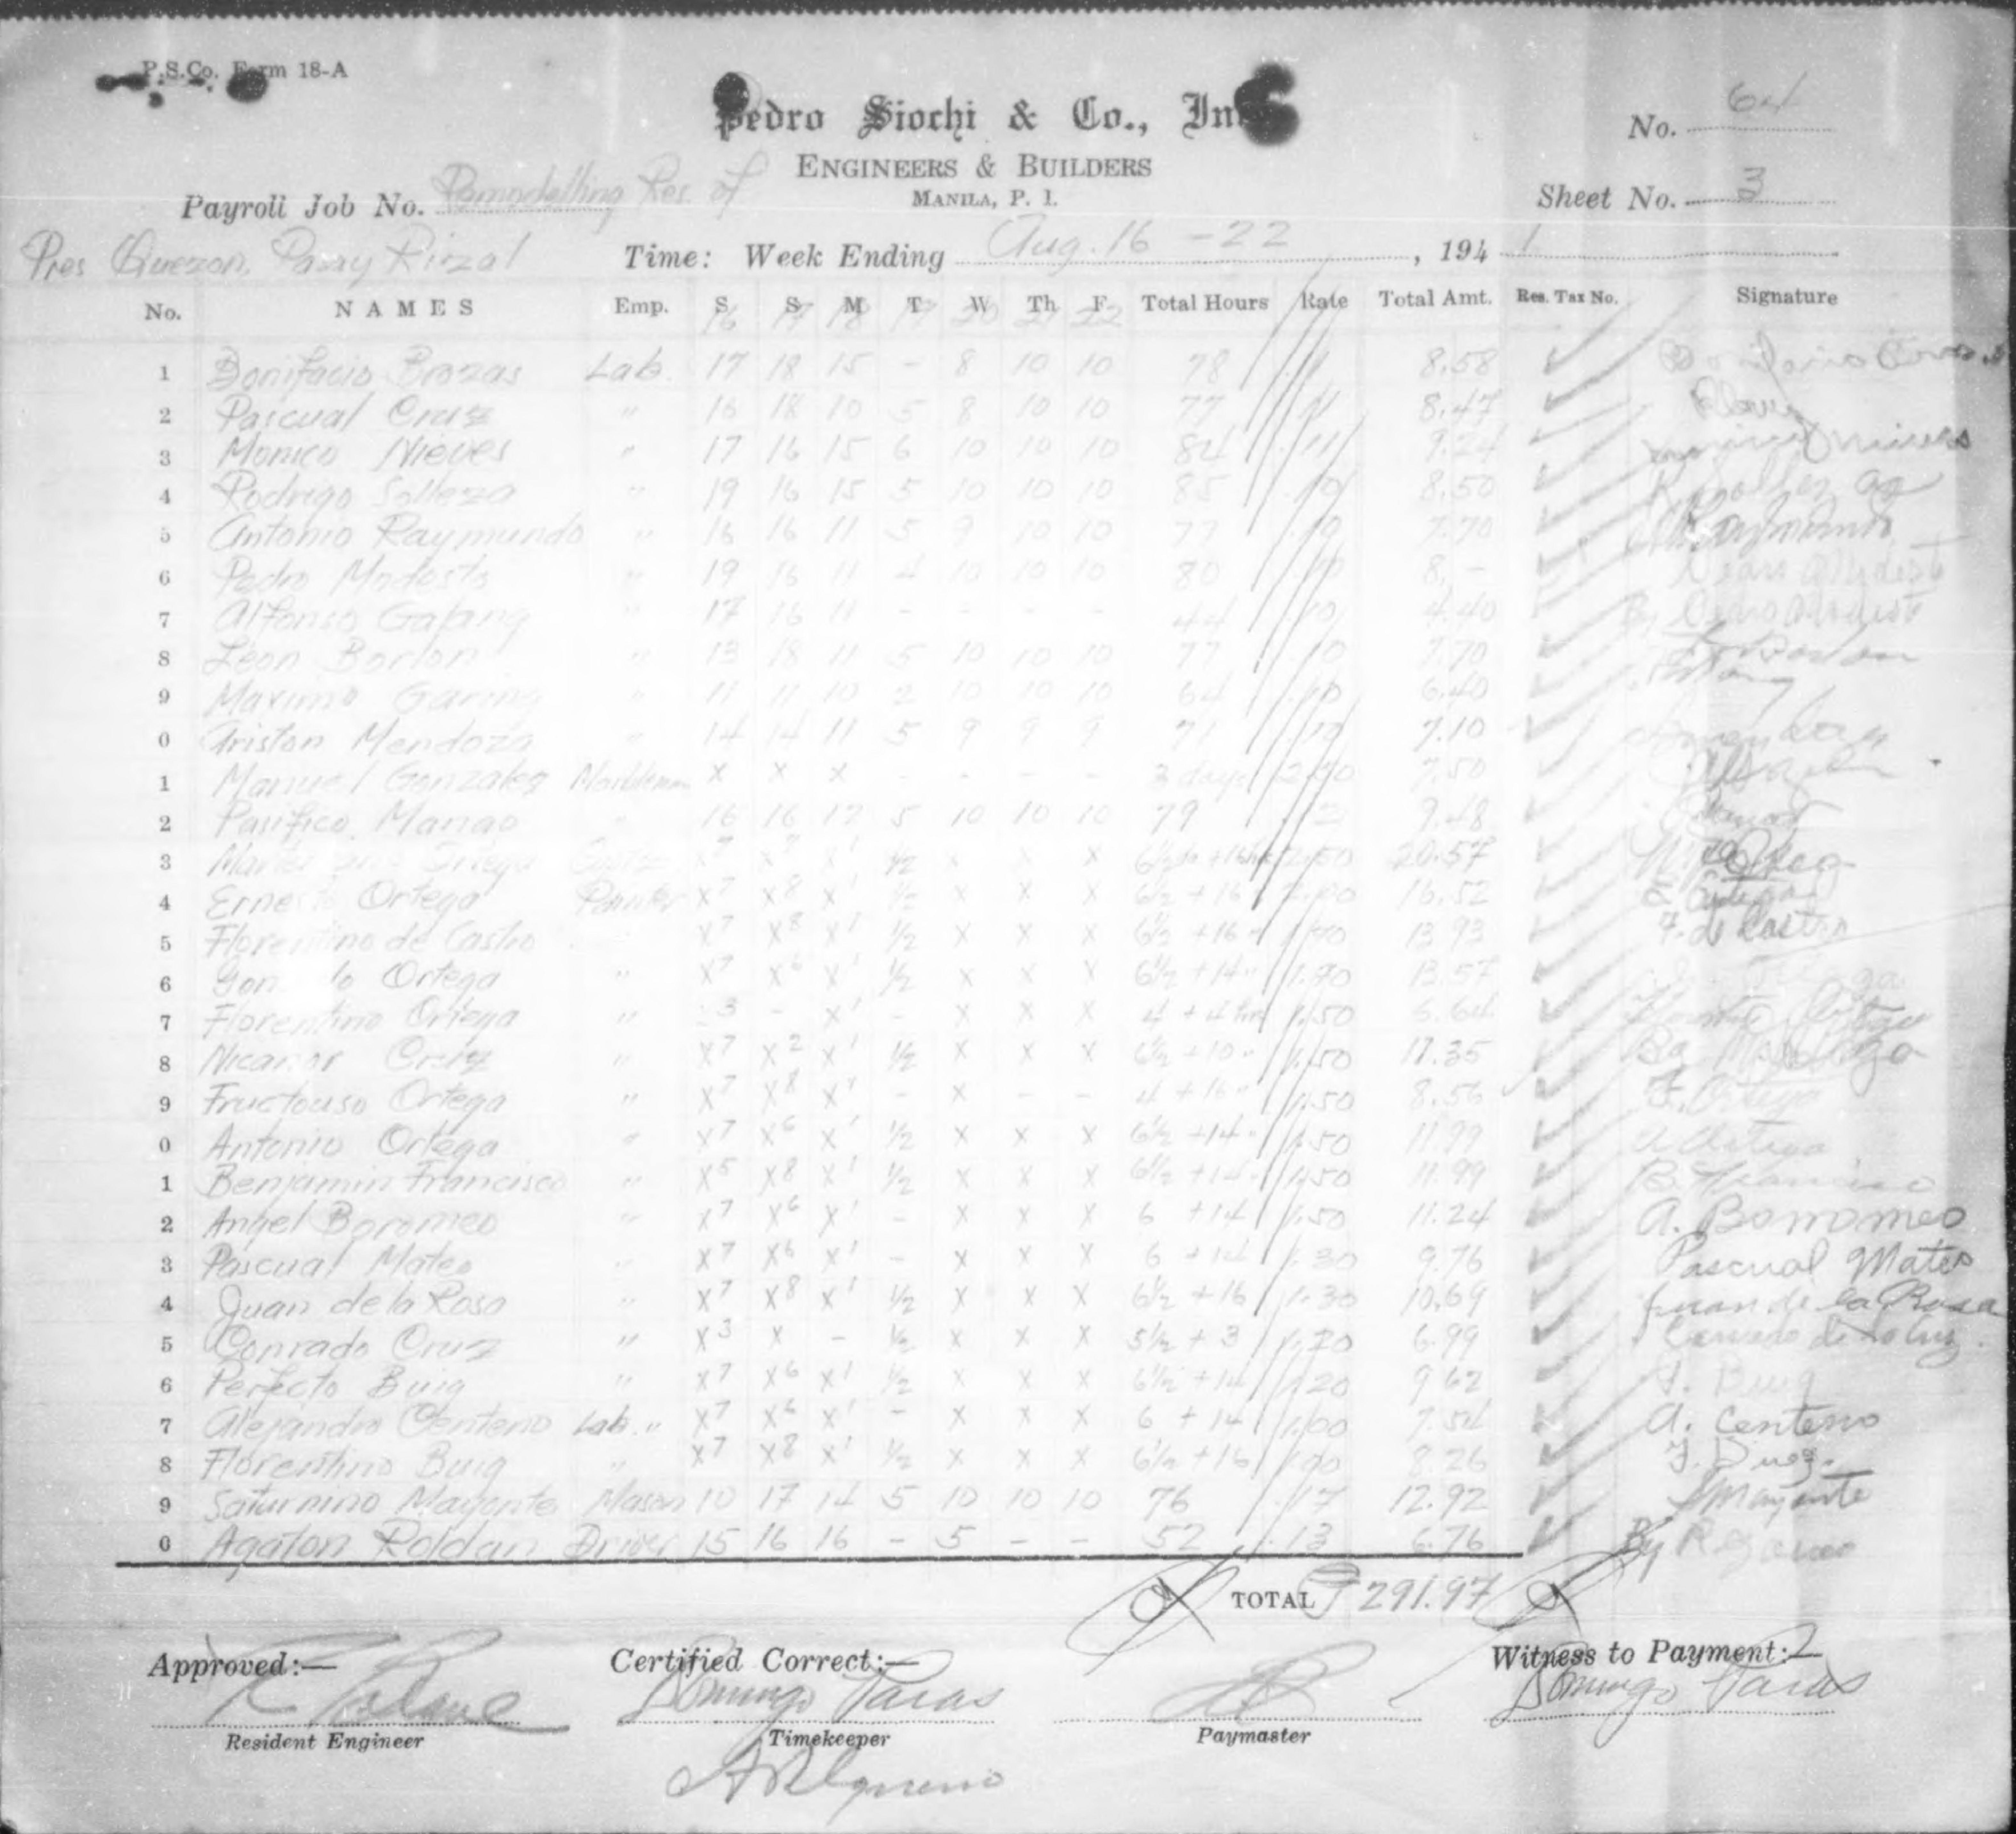 P.S.Co. Form 18-A
Pedro Siochi & Co., Inc
ENGINEERS & BUILDERS
MANILA, P. I.
No. 64
Sheet No. 3
Payroll Job No. Remodelling Res. of
Pres Quezon, Pasay Rizal
Time: Week Ending Aug. 16 - 22, 1941
No. NAMES Emp. S S M T W Th F Total Hours Rate Total Amt. Res. Tax No. Signature
16 17 18 19 20 21 22
1 Bonifacio Brozas Lab. 17 18 15 - 8 10 10 78 .11 8.58
2 Pascual Cruz " 16 18 10 5 8 10 10 77 .11 8.47
3 Monico Nieves " 17 16 15 6 10 10 10 84 .11 9.24
4 Rodrigo Solleza " 19 16 15 5 10 10 10 85 .10 8.50
5 Antonio Raymundo " 16 16 11 5 9 10 10 77 .10 7.70 Raymundo
6 Pedro Modesto " 19 16 11 4 10 10 10 80 .10 8.-
7 Alfonso Gapang " 17 16 11 - - - - 44 .10 4.40 By Pedro Modesto
8 Leon Borlon " 13 18 11 5 10 10 10 77 .10 7.70
9 Maximo Garing " 11 11 10 2 10 10 10 64 .10 6.40
0 Ariston Mendoza " 14 14 11 5 9 9 9 71 .10 7.10
1 Manuel Gonzales x x x - - - - 3 days 2.50 7.50
2 Pasifico Manao " 16 16 12 5 10 10 10 79 .12 9.48
3 Ortega x7 x7 x1 1/2 x x x 20.57
4 Ernesto Ortega Painter x7 x8 x1 1/2 x x x 6 1/2 + 16 2.00 16.52
5 Florentino de Castro x7 x8 x1 1/2 x x x 6 1/2 + 16 " 1.70 13.93 F. de Castro
6 Ortega " x7 x6 x1 1/2 x x x 6 1/2 + 14 " 1.70 13.57
7 Florentino Ortega " 3 - x1 - x x x 4 + 4 hrs 1.50 6.64
8 Nicanor Cruz " x7 x2 x1 1/2 x x x 6 1/2 + 10 " 1.50 11.35
9 Fructouso Ortega " x7 x8 x1 - x - - 4 + 16 " 1.50 8.56 F. Ortega
0 Antonio Ortega " x7 x6 x1 1/2 x x x 6 1/2 + 14 " 1.50 11.99 A Ortega
1 Benjamin Francisco " x5 x8 x1 1/2 x x x 6 1/2 + 14 " 1.50 11.99 B. Francisco
2 Angel Boromeo " x7 x6 x1 - x x x 6 + 14 1.50 11.24 A. Borromeo
3 Pascual Mateo " x7 x6 x1 - x x x 6 + 14 1.30 9.76 Pascual Mateo
4 Juan de la Rosa " x7 x8 x1 1/2 x x x 6 1/2 + 16 1.30 10.69 Juan de la Rosa
5 Conrado Cruz " x3 x - 1/2 x x x 5 1/2 + 3 1.20 6.99
6 Perfecto Buig " x7 x6 x1 1/2 x x x 6 1/2 + 14 1.20 9.62 P. Buig
7 Alejandro Centeno Lab. " x7 x6 x1 - x x x 6 + 14 1.00 7.51 A. Centeno
8 Florentino Buig " x7 x8 x1 1/2 x x x 6 1/2 + 16 1.00 8.26
9 Saturnino Mayente Mason 10 17 14 5 10 10 10 76 .17 12.92 S Mayente
0 Agaton Roldan Driver 15 16 16 - 5 - - 52 .13 6.76 By
TOTAL 291.97
Approved:— Certified Correct:— Witness to Payment:—
Domingo Paras Domingo Paras
Resident Engineer Timekeeper Paymaster